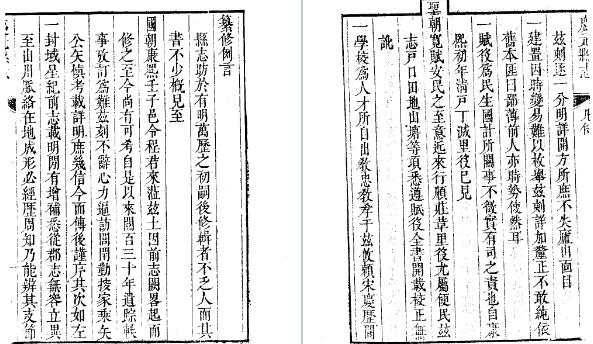 纂修例言
縣志昉於有明萬歷之初嗣後修輯者不乏人而其
書不少概見至
國朝康熙壬子邑令程君來蒞茲土因前志闕畧起而
修之至今尚有可考自是以來閱百三十年遺踪軼
事攷訂為難茲刻不辭心力遍訪閭閈勤搜家乘矢
公矢慎考載詳明庶幾信今而傳後謹序其次如左
一封域星紀前志載明間有增補悉從郡志無容立異
至山川脈絡在地成形必經歷周知乃能辨其支節
慶元縣志
茲刻逐一分明詳開方所庶不失廬山面目
一建置因時變易難以枚舉茲刻詳加釐正不敢純依
舊本匪曰鄙薄前人亦時勢使然耳
一賦役為民生國計所關事不徵實有司之責也自康
熙初年清戶丁減里役已見
聖朝寬賦安民之至意近來行順莊革里役尤屬便民茲
志戶口田地山塘等項悉遵賦役全書開載校正無
訛
一學校為人才所自出教忠教孝于茲攸賴宋慶歷間